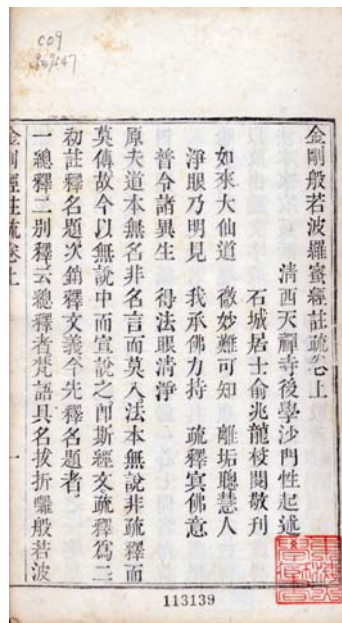 C09
金剛般若波羅蜜經註疏卷上
清西天禪寺後學沙門性起述
石城居士俞兆龍校閱敬刊
如來大仙道　微妙難可知　離垢聰慧人
淨眼乃明見　我承佛力持　疏釋宣佛意
普令諸異生　得法眼清淨
原夫道本無名非名言而莫入法本無說非疏釋而
莫傳故今以無說中而宣說之即斯經文疏釋爲二
初註釋名題次銷釋文義今先釋名題者
一總釋二別釋云總釋者梵語具名拔折囉般若波
金剛經註疏卷上
一
113139